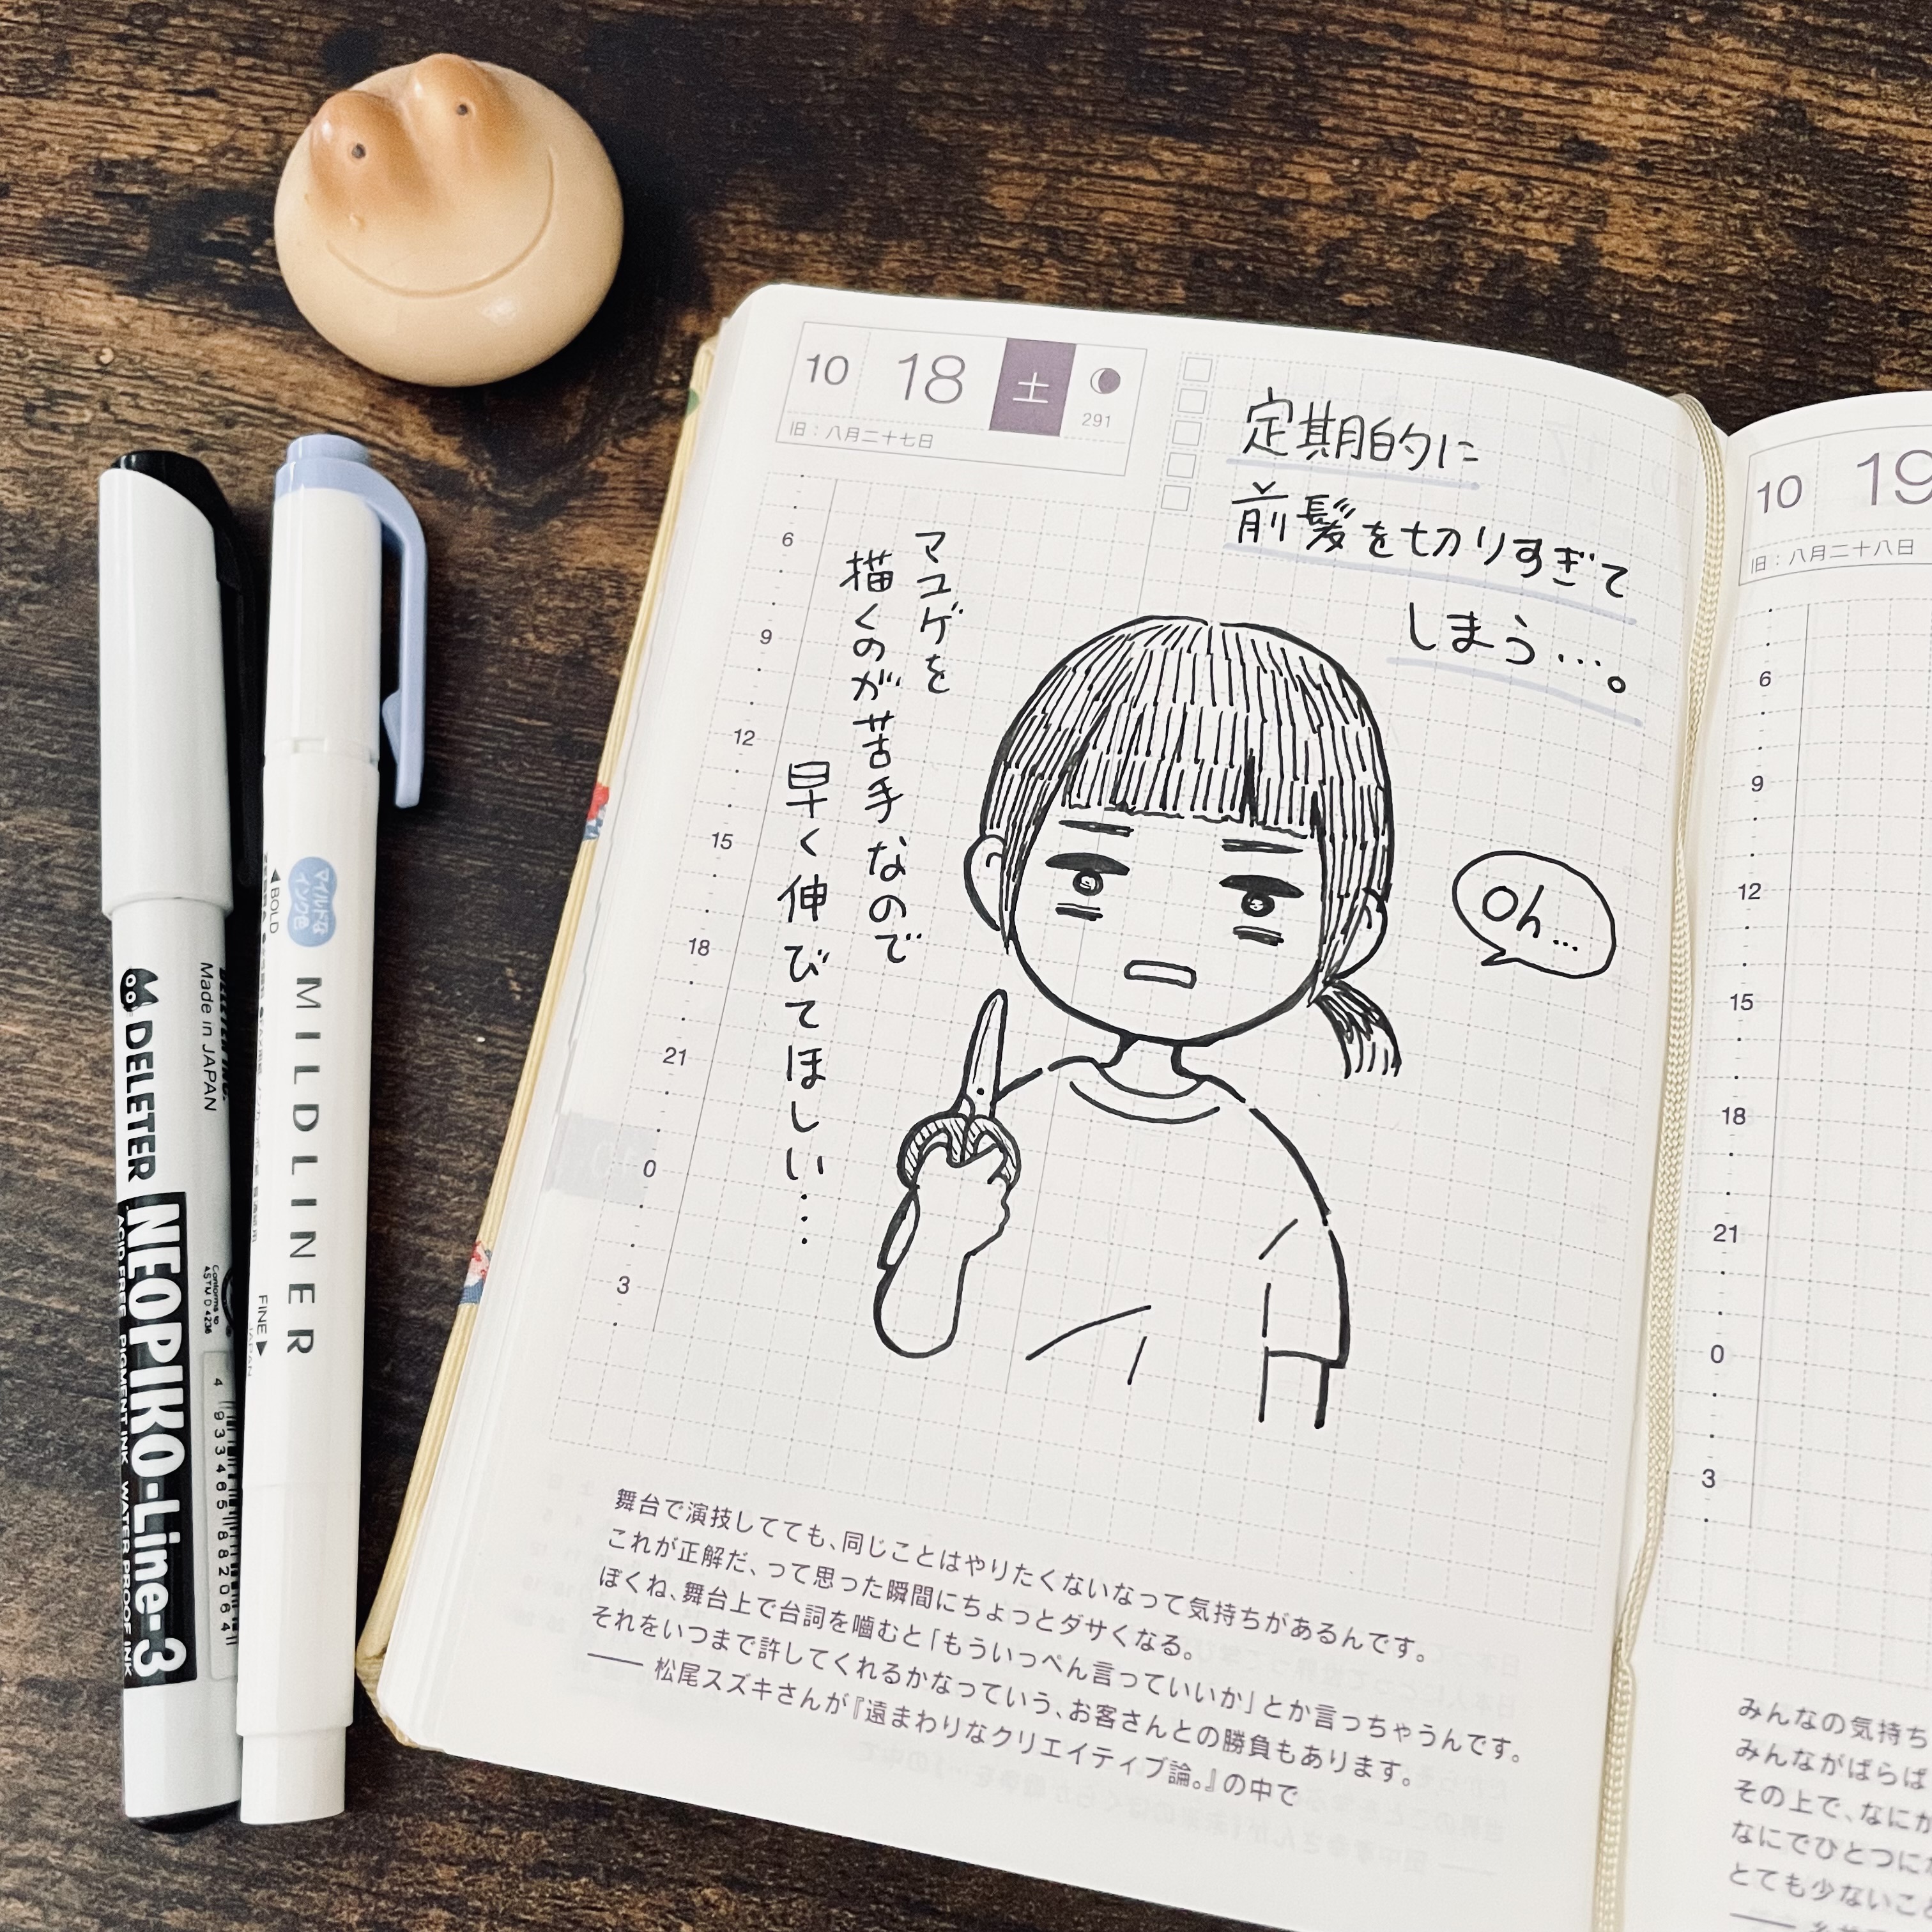 10 18 土
291
旧：八月二十七日
定期的に
前髪を切りすぎて
しまう…。
マユゲを
描くのが苦手なので
早く伸びてほしい…
Oh…
6
9
12
15
18
21
0
3
舞台で演技してても、同じことはやりたくないなって気持ちがあるんです。
これが正解だ、って思った瞬間にちょっとダサくなる。
ぼくね、舞台上で台詞を噛むと「もういっぺん言っていいか」とか言っちゃうんです。
それをいつまで許してくれるかなっていう、お客さんとの勝負もあります。
── 松尾スズキさんが『遠まわりなクリエイティブ論。』の中で
10 19
旧：八月二十八日
6
9
12
15
18
21
0
3
みんなの気持ち
みんながばらば
その上で、なにか
なにでひとつに
とても少ないこ
DELETER
NEOPIKO-Line-3
ACID FREE PIGMENT INK WATER PROOF INK
Made in JAPAN
Conforms to
ASTM D 4236
4 933465 882064
◀BOLD
マイルドな
インク色
MILDLINER
FINE▶